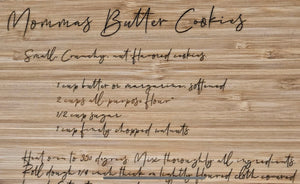 Mommas Butter Cookies
Small Crunchy nut flavored cookies
1 cup butter or margarine, softened
2 cups all-purpose flour*
1/2 cup sugar
1 cup finely chopped walnuts
Heat oven to 300 degrees. Mix thoroughly all ingredients.
Roll dough 1/4 inch thick on lightly floured cloth covered